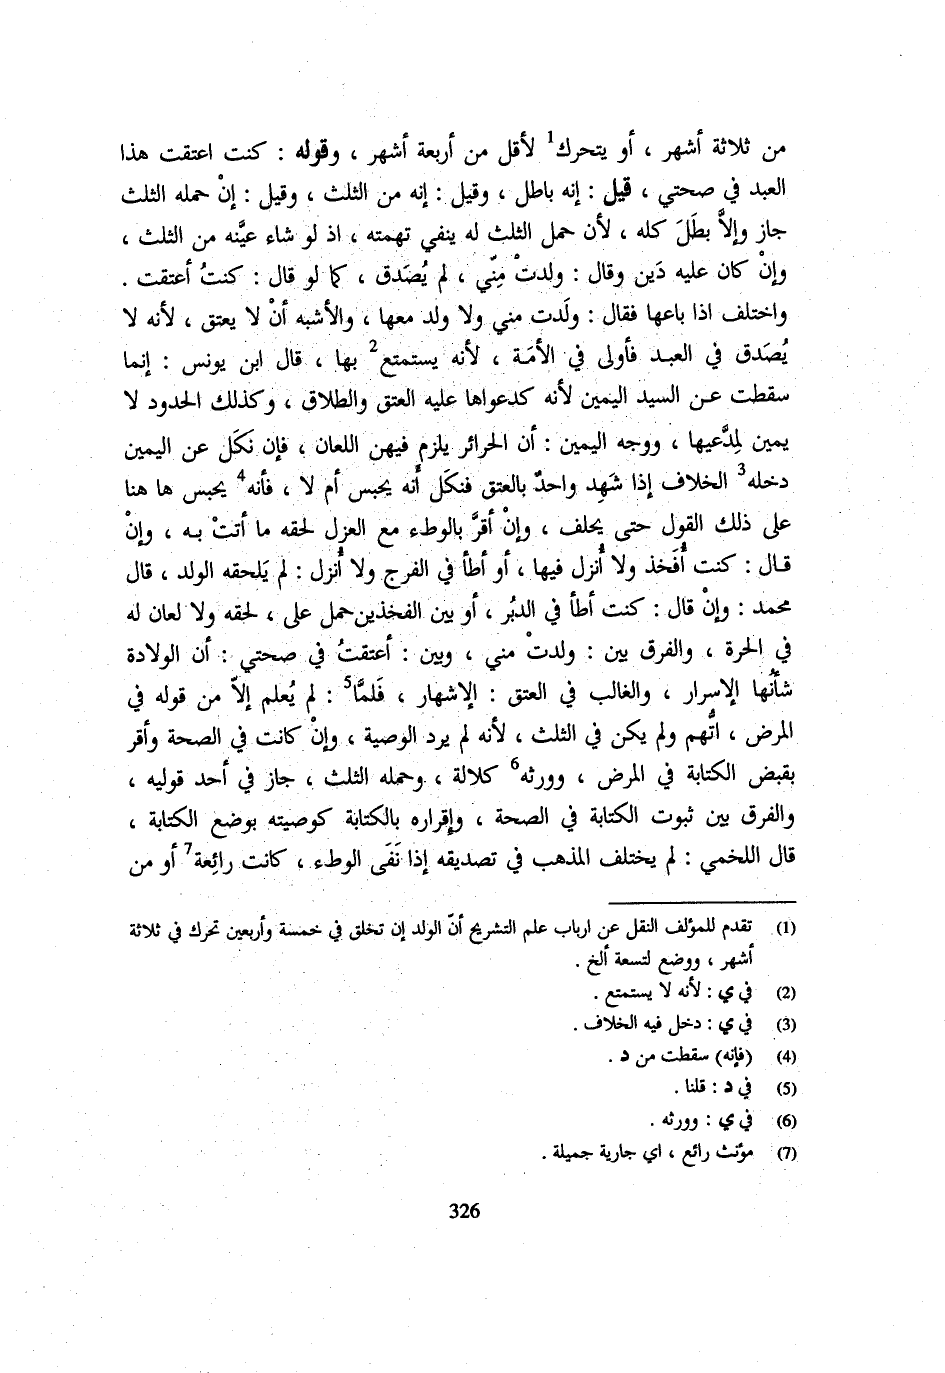 من ثلاثة أشهر ، أو يتحرك1 لأقل من أربعة أشهر ، وقوله : كنت اعتقت هذا
العبد في صحتي ، قيل : إنه باطل ، وقيل : إنه من الثلث ، وقيل : إنْ حمله الثلث
جاز وإلاَّ بطَلَ كله ، لأن حمل الثلث له ينفي تهمته ، اذ لو شاء عيَّنه من الثلث ،
وإنْ كان عليه دَين وقال : ولدتْ مِنّي ، لم يُصَدق ، كما لو قال : كنتُ أعتقت .
واختلف اذا باعها فقال : ولَدت مني ولا ولد معها ، والأشبه أنْ لا يعتق ، لأنه لا
يُصَدق في العبد فأولى في الأمَة ، لأنه يستمتع2 بها ، قال ابن يونس : إنما
سقطت عن السيد اليمين لأنه كدعواها عليه العتق والطلاق ، وكذلك الحدود لا
يمين لِمدَّعيها ، ووجه اليمين : أن الحرائر يلزم فيهن اللعان ، فإن نكَل عن اليمين
دخله3 الخلاف إذا شَهِد واحدٌ بالعتق فنكَل أنه يحبس أم لا ، فأنه4 يحبس ها هنا
على ذلك القول حتى يحلف ، وإنْ أقرَّ بالوطء مع العزل لحقه ما أتتْ به ، وإنْ
قال : كنت أُفَخذ ولا أُنزل فيها ، أو أطأ في الفرج ولا أُنزل : لم يَلحقه الولد ، قال
محمد : وإنْ قال : كنت أطأ في الدبُر ، أو بين الفخذين حمل على ، لحقه ولا لعان له
في الحرة ، والفرق بين : ولدتْ مني ، وبين : أعتقتُ في صحتي : أن الولادة
شأنُها الإسرار ، والغالب في العتق : الإشهار ، فَلمَّا5 : لم يُعلم إلاّ من قوله في
المرض ، اتُّهم ولم يكن في الثلث ، لأنه لم يرد الوصية ، وإنْ كانت في الصحة وأقر
بقبض الكتابة في المرض ، وورثه6 كلالة ، وحمله الثلث ، جاز في أحد قوليه ،
والفرق بين ثبوت الكتابة في الصحة ، وإقراره بالكتابة كوصيته بوضع الكتابة ،
قال اللخمي : لم يختلف المذهب في تصديقه إذا نَفَى الوطء ، كانت رائِعة7 أو من
(1) تقدم للمؤلف النقل عن ارباب علم التشريح أنّ الولد إن تخلق في خمسة وأربعين تحرك في ثلاثة
أشهر ، ووضع لتسعة ألخ .
(2) في ي : لأنه لا يستمتع .
(3) في ي : دخل فيه الخلاف .
(4) (فإنه) سقطت من د .
(5) في د : قلنا .
(6) في ي : وورثه .
(7) مؤنث رائع ، اي جارية جميلة .
326